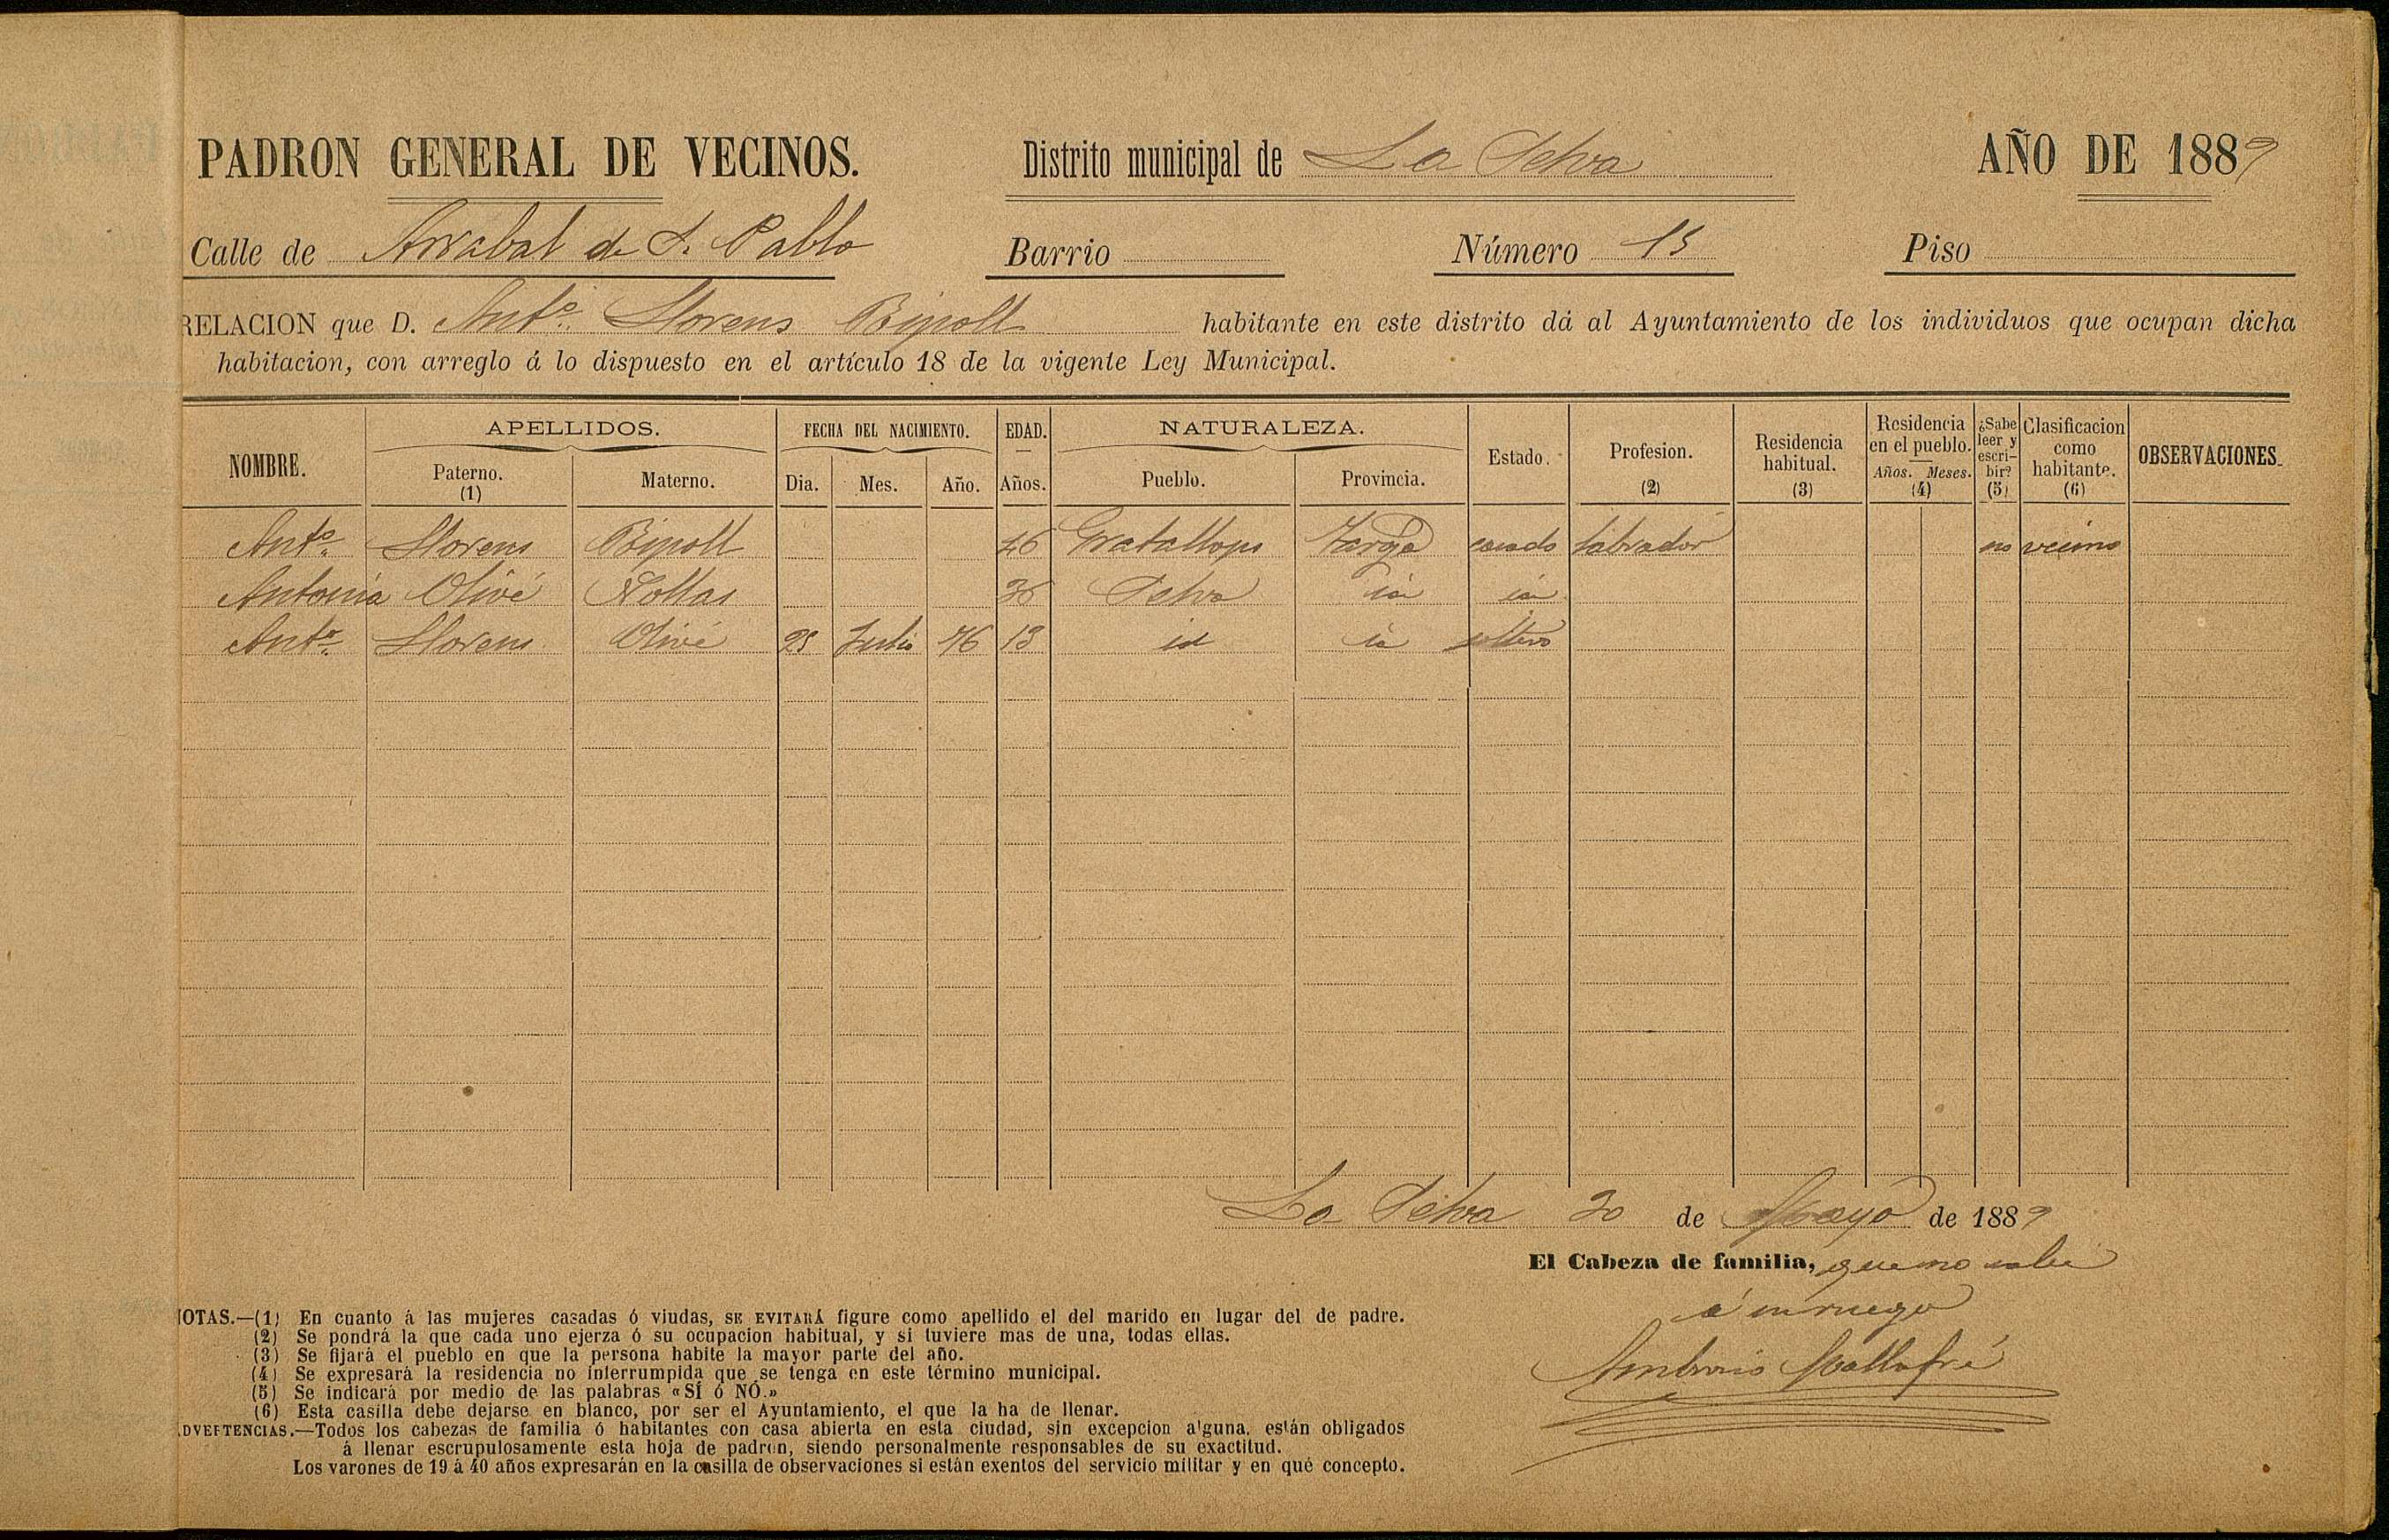 PADRON GENERAL DE VECINOS. Distrito municipal de La Selva AÑO DE 1889
Calle de Arrabal de S. Pablo Barrio Número 15 Piso
RELACION que D. Antº Llorens Ripoll habitante en este distrito dá al Ayuntamiento de los individuos que ocupan dicha
habitacion, con arreglo á lo dispuesto en el artículo 18 de la vigente Ley Municipal.
NOMBRE. APELLIDOS. Paterno. (1) Materno. FECHA DEL NACIMIENTO. Dia. Mes. Año. EDAD. Años. NATURALEZA. Pueblo. Provincia. Estado. Profesion. (2) Residencia habitual. (3) Residencia en el pueblo. Años. Meses. (4) ¿Sabe leer y escribir? (5) Clasificacion como habitante. (6) OBSERVACIONES.
Antº Llorens Ripoll 46 Gratallops Tarrgª casado labrador no vecino
Antonia Olivé Nollas 36 Selva id id
Antº Llorens Olivé 25 Julio 76 13 id id soltero
La Selva 20 de Mayo de 1889
El Cabeza de familia, que no sabe
á su ruego
Ambrosio Mallafré
NOTAS.—(1) En cuanto á las mujeres casadas ó viudas, SE EVITARÁ figure como apellido el del marido en lugar del de padre.
(2) Se pondrá la que cada uno ejerza ó su ocupacion habitual, y si tuviere mas de una, todas ellas.
(3) Se fijará el pueblo en que la persona habite la mayor parte del año.
(4) Se expresará la residencia no interrumpida que se tenga en este término municipal.
(5) Se indicará por medio de las palabras «SÍ ó NÓ.»
(6) Esta casilla debe dejarse en blanco, por ser el Ayuntamiento, el que la ha de llenar.
ADVERTENCIAS.—Todos los cabezas de familia ó habitantes con casa abierta en esta ciudad, sin excepcion alguna, están obligados
á llenar escrupulosamente esta hoja de padron, siendo personalmente responsables de su exactitud.
Los varones de 19 á 40 años expresarán en la casilla de observaciones si están exentos del servicio militar y en qué concepto.